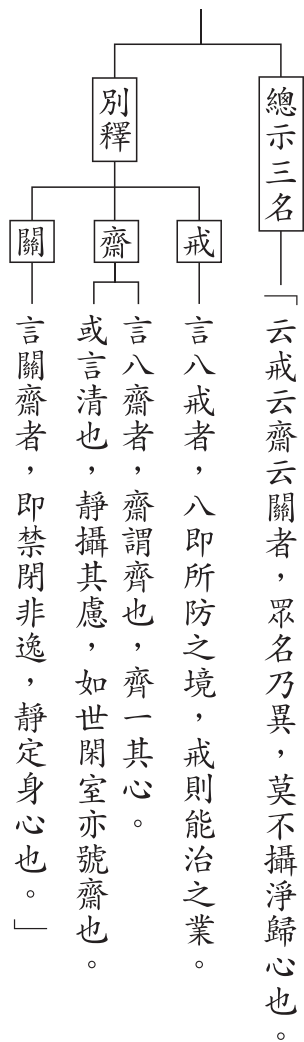 總示三名
「云戒云齋云關者，眾名乃異，莫不攝淨歸心也。
別釋
戒
言八戒者，八即所防之境，戒則能治之業。
齋
言八齋者，齋謂齊也，齊一其心。
或言清也，靜攝其慮，如世閑室亦號齋也。
關
言關齋者，即禁閉非逸，靜定身心也。」